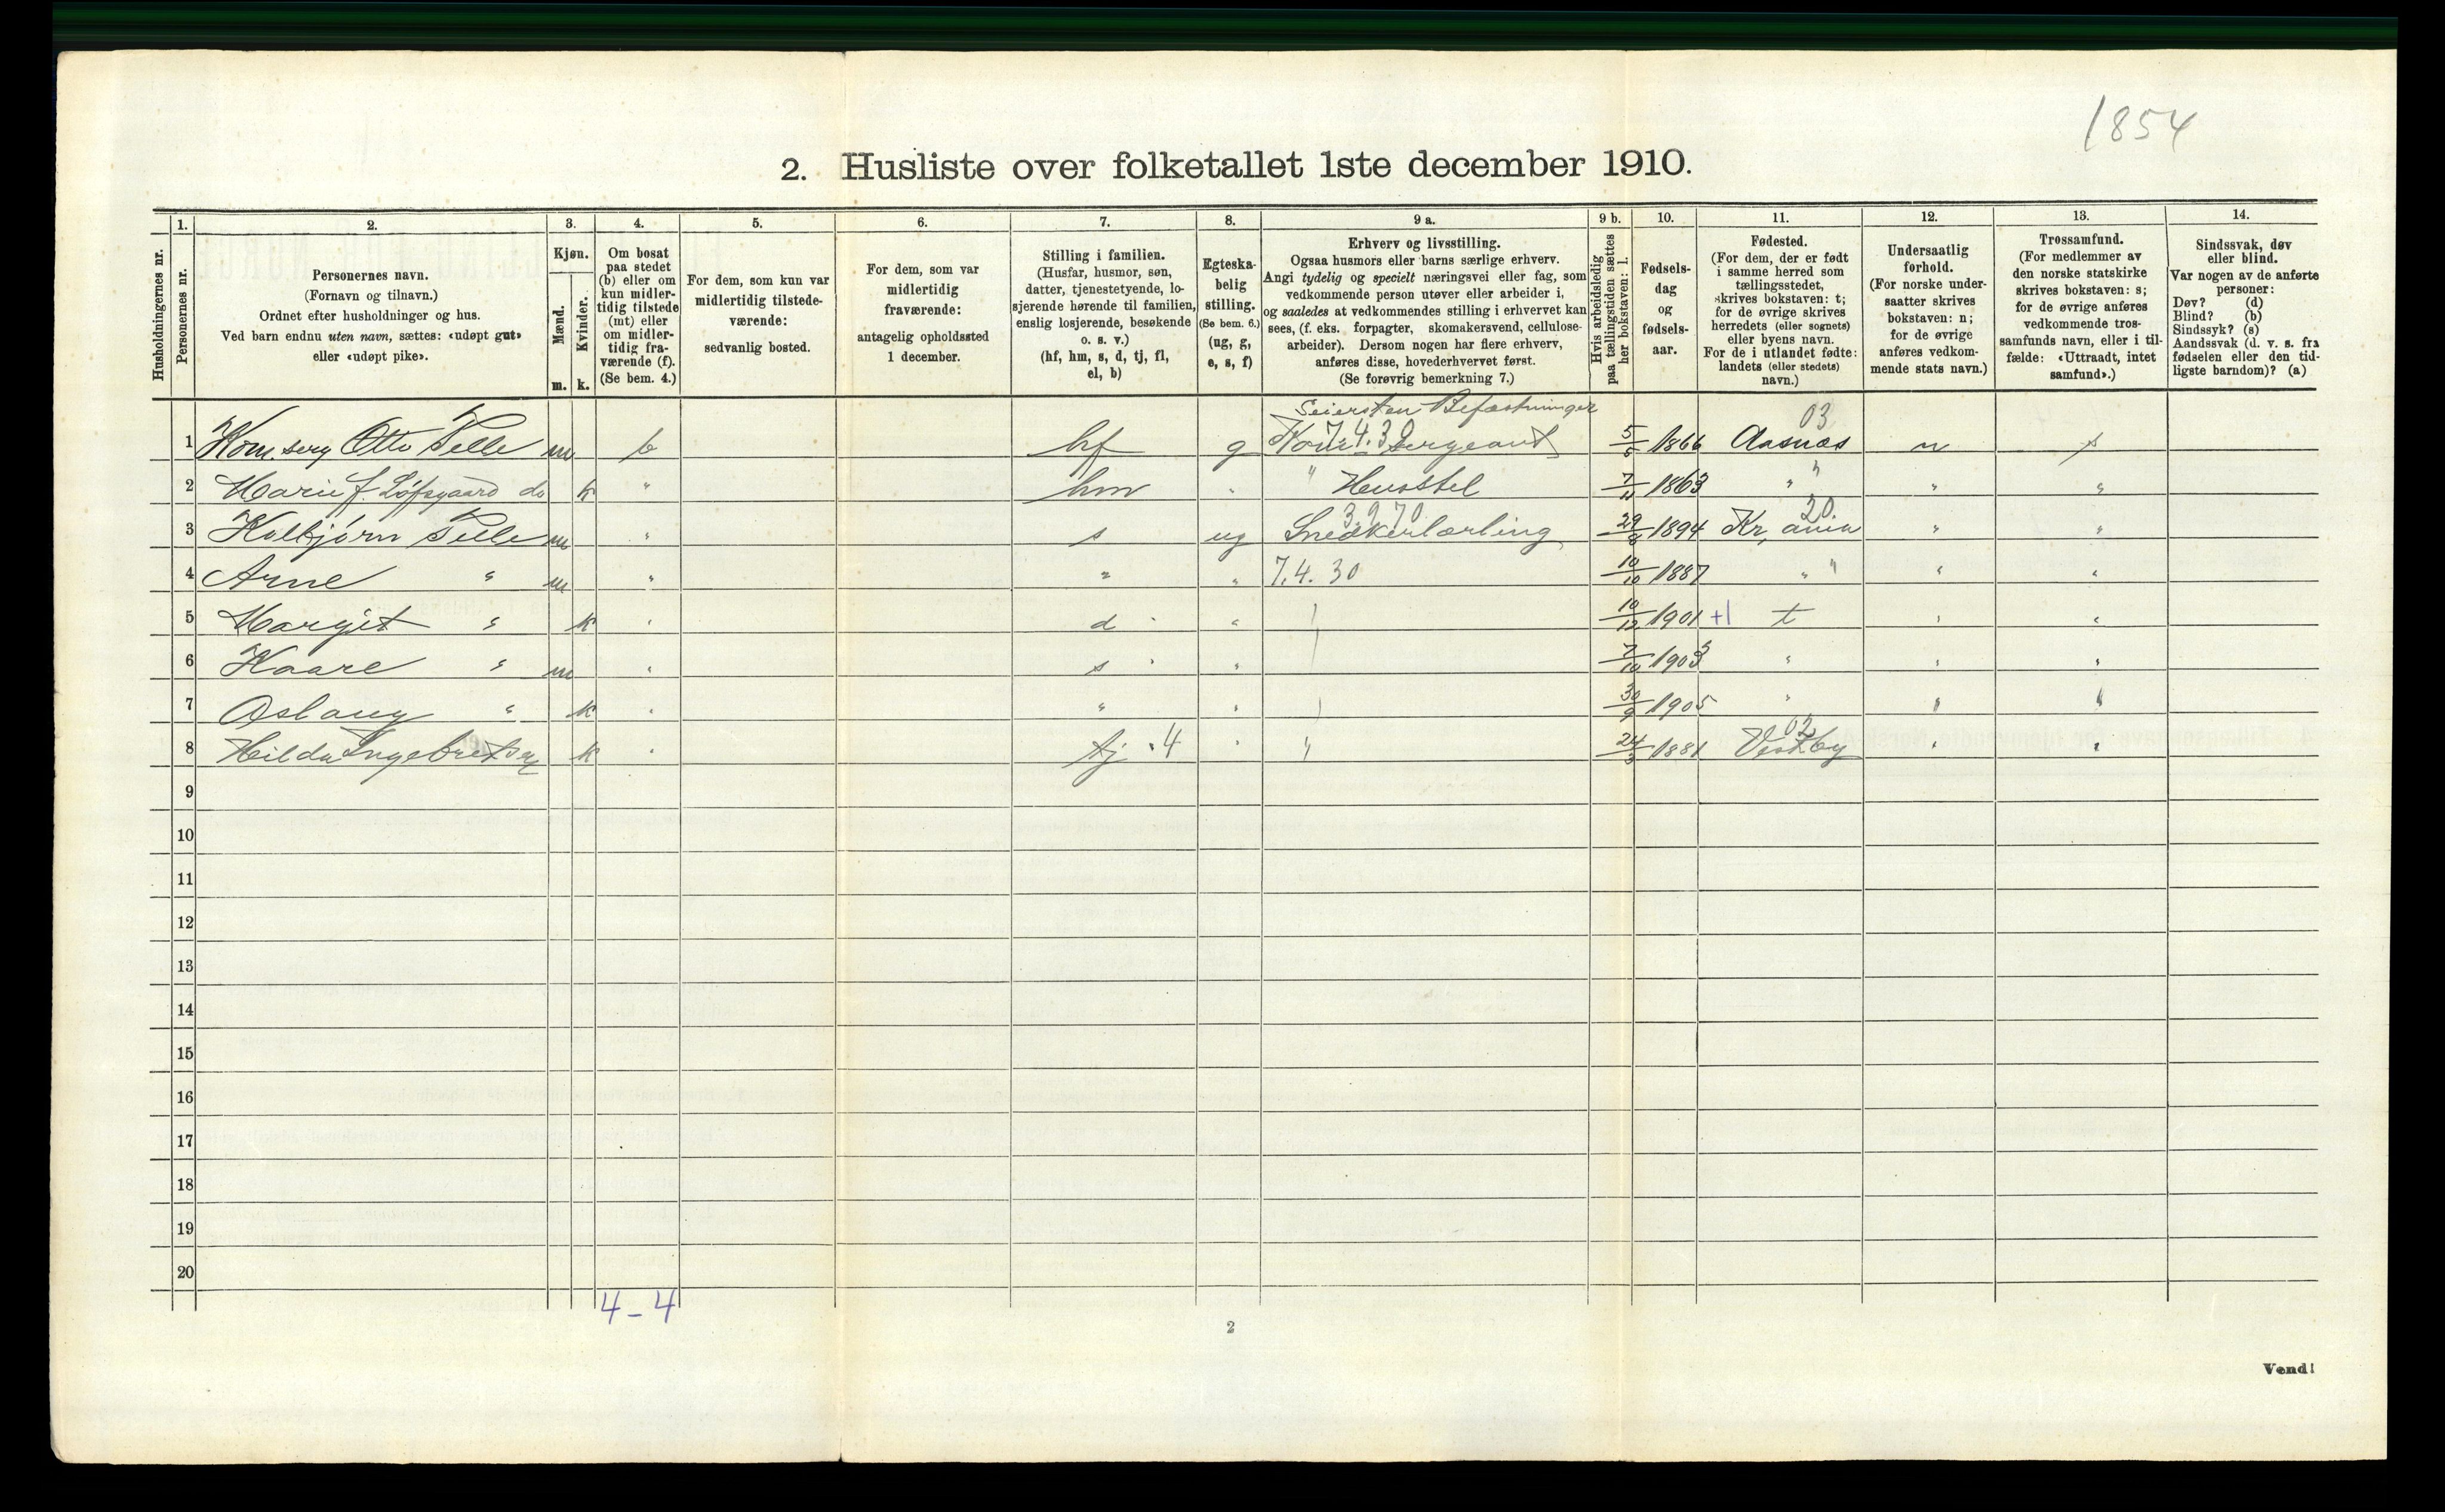 1854
2. Husliste over folketallet 1ste december 1910.
Husholdningernes nr.
1.
Personernes nr.
2.
Personernes navn.
(Fornavn og tilnavn.)
Ordnet efter husholdninger og hus.
Ved barn endnu uten navn, sættes: «udøpt gut»
eller «udøpt pike».
3.
Kjøn.
Mænd.
Kvinder.
m. k.
4.
Om bosat
paa stedet
(b) eller om
kun midler-
tidig tilstede
(mt) eller
om midler-
tidig fra-
værende (f).
(Se bem. 4.)
5.
For dem, som kun var
midlertidig tilstede-
værende:
sedvanlig bosted.
6.
For dem, som var
midlertidig
fraværende:
antagelig opholdssted
1 december.
7.
Stilling i familien.
(Husfar, husmor, søn,
datter, tjenestetyende, lo-
sjerende hørende til familien,
enslig losjerende, besøkende
o. s. v.)
(hf, hm, s, d, tj, fl,
el, b)
8.
Egteska-
belig
stilling.
(Se bem. 6.)
(ug, g,
e, s, f)
9 a.
Erhverv og livsstilling.
Ogsaa husmors eller barns særlige erhverv.
Angi tydelig og specielt næringsvei eller fag, som
vedkommende person utøver eller arbeider i,
og saaledes at vedkommendes stilling i erhvervet kan
sees, (f. eks. forpagter, skomakersvend, cellulose-
arbeider). Dersom nogen har flere erhverv,
anføres disse, hovederhvervet først.
(Se forøvrig bemerkning 7.)
9 b.
Hvis arbeidsledig
paa tællingstiden sættes
her bokstaven: l.
10.
Fødsels-
dag
og
fødsels-
aar.
11.
Fødested.
(For dem, der er født
i samme herred som
tællingsstedet,
skrives bokstaven: t;
for de øvrige skrives
herredets (eller sognets)
eller byens navn.
For de i utlandet fødte:
landets (eller stedets)
navn.)
12.
Undersaatlig
forhold.
(For norske under-
saatter skrives
bokstaven: n;
for de øvrige
anføres vedkom-
mende stats navn.)
13.
Trossamfund.
(For medlemmer av
den norske statskirke
skrives bokstaven: s;
for de øvrige anføres
vedkommende tros-
samfunds navn, eller i til-
fælde: «Uttraadt, intet
samfund».)
14.
Sindssvak, døv
eller blind.
Var nogen av de anførte
personer:
Døv? (d)
Blind? (b)
Sindssyk? (s)
Aandssvak (d. v. s. fra
fødselen eller den tid-
ligste barndom)? (a)
Seiersten Befæstninger 03
1 Kom. serg Otto Velle m b hf g 7.4.30 Kom. Sergeant 5/5 1866 Aasnæs n s
2 Marie f. Løfsgaard do k " hm " " Husstel 7/11 1863 " " " "
3.9.70 20
3 Kolbjørn Velle m " s ug Snedkerlærling 29/8 1894 Kr,ania " "
4 Arne " m " " " 7.4.30 10/10 1887 " " " "
5 Margit " k " d " 10/12 1901 +1 t " "
6 Kaare " m " s " 7/10 1903 " " "
7 Aslaug " k " " " 30/9 1905 " " "
02
8 Hilda Ingebretsen k " tj .4 " " 24/3 1881 Vestby " "
9
10
11
12
13
14
15
16
17
18
19
20
4-4
2
Vend!